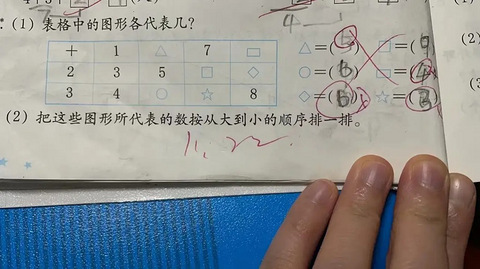 (1) 表格中的图形各代表几?
+ 1 △ 7 □
2 3 5 □ ◇
3 4 ○ ☆ 8
△=( □=(9
○=(6) □=(4)
◇=(6) ☆=(3)
(2) 把这些图形所代表的数按从大到小的顺序排一排。